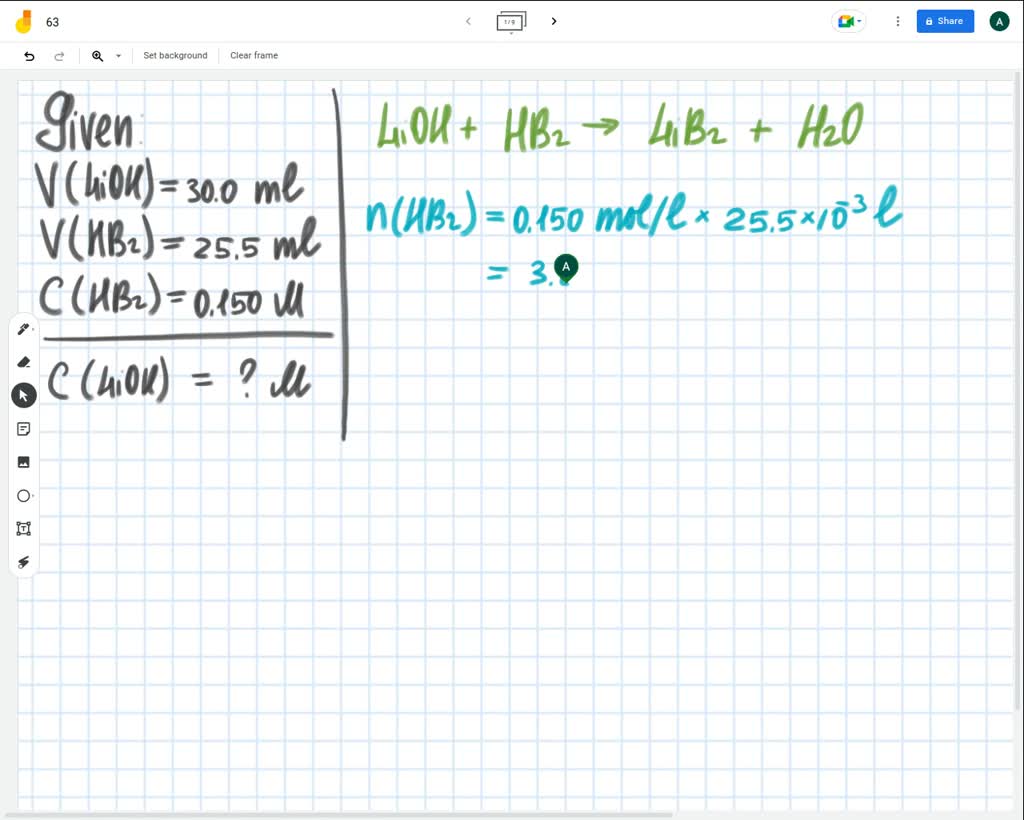 63
1/9
Share
A
Set background
Clear frame
Given:
V(LiOH) = 30.0 ml
V(HBr) = 25.5 ml
C(HBr) = 0.150 M
C(LiOH) = ? M
LiOH + HBr → LiBr + H2O
n(HBr) = 0.150 mol/l × 25.5 × 10⁻³ l
= 3.
A